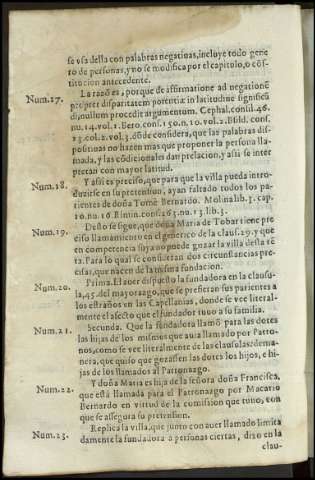 se vsa della con palabras negatiuas, incluye todo gene
ro de personas, y no se modifica por el capitulo, o cõs-
titucion antecedente.
Num.17. La razõ es, porque de affirmatione ad negationẽ
propter disparitatem potentiæ in latitudine significã
di, nullum procedit argumentum. Cephal. consil. 46.
nu. 14. vol. 1. Bero. cons. 150. n. 10. vol. 2. Bild. cons.
23. col. 2. vol. 3. dõde considera, que las palabras dis-
positiuas no hazen mas que proponer la persona lla-
mada, y las cõdicionales dan prelacion, y assi se inter
pretan con mayor latitud.
Num.18. Y assi es preciso, que para que la villa pueda intro-
duzirse en su pretension, ayan faltado todos los pa-
rientes de doña Tome Bernardo. Molina lib. 3. cap.
10. nu. 16. Rimin. cons. 263. nu. 13. lib. 3.
Num.19. Desto se sigue, que doña Maria de Tobar tiene pre
ciso llamamiento en el generico de la claus. 29. y que
en competencia suya no puede gozar la villa desta rẽ
ta. Para lo qual se consideran dos circunstancias pre-
cisas, que nacen de la misma fundacion.
Num.20. Prima. El auer dispuesto la fundadora en la clausu-
la, 45. del mayorazgo, que se prefieran sus parientes a
los estraños en las Capellanias, donde se vee literal-
mente el afecto que el fundador tuuo a su familia.
Num.21. Secunda. Que la fundadora llamõ para las dotes
las hijas de los mismos que auia llamado por Patro-
nos, como se vee literalmente de las clausulas; de ma-
nera, que quiso que gozassen las dotes los hijos, e hi-
jas de los llamados al Patronazgo.
Num.22. Y doña Maria es hija de la señora doña Francisca,
que està llamada para el Patronazgo por Macario
Bernardo en virtud de la comission que tuuo, con
que se assegura su pretension.
Num.23. Replica la villa, que junto con auer llamado limita
damente la fundadora a personas ciertas, dixo en la
clau-